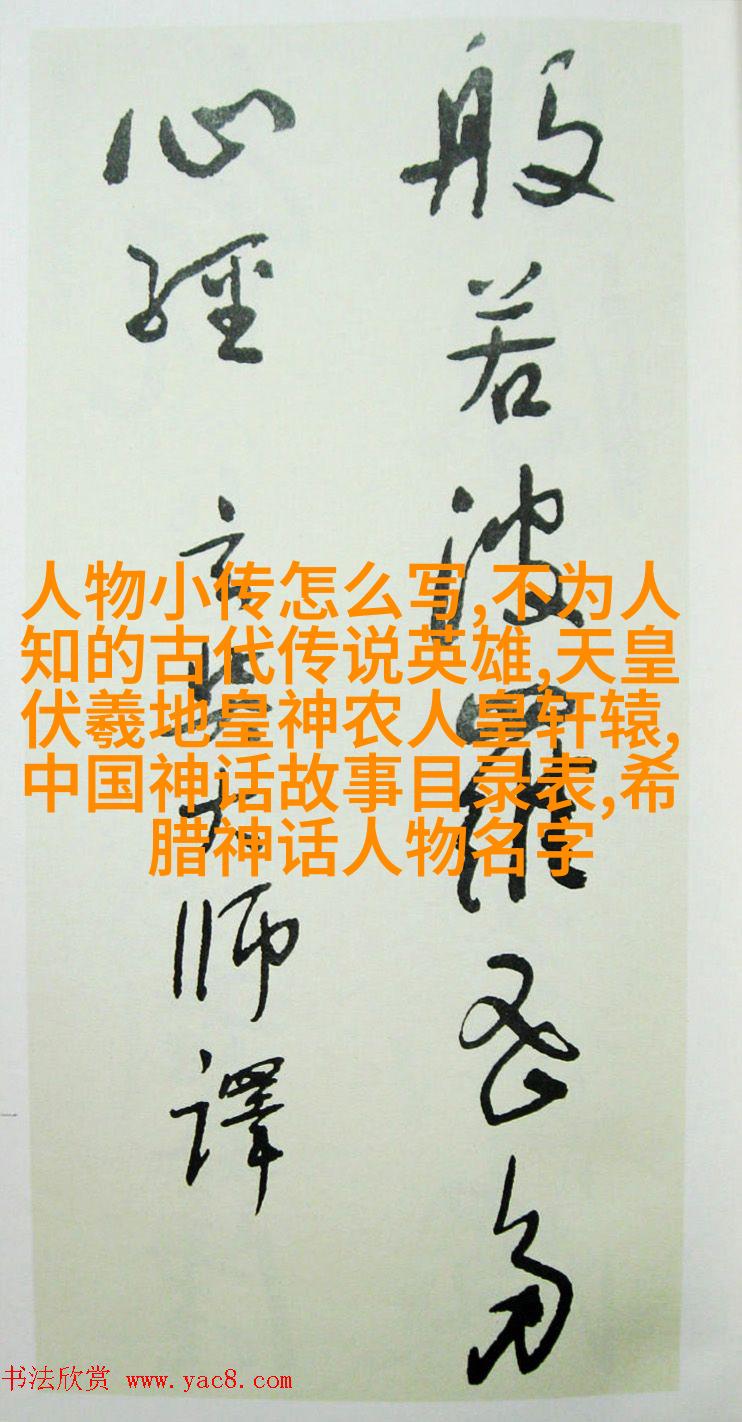 般若波羅蜜多
心經 玄奘大师譯
人物小传怎么写,不为人
知的古代传说英雄,天皇
伏羲地皇神农人皇轩辕,
中国神话故事目录表,希
腊神话人物名字
书法欣赏 www.yac8.com